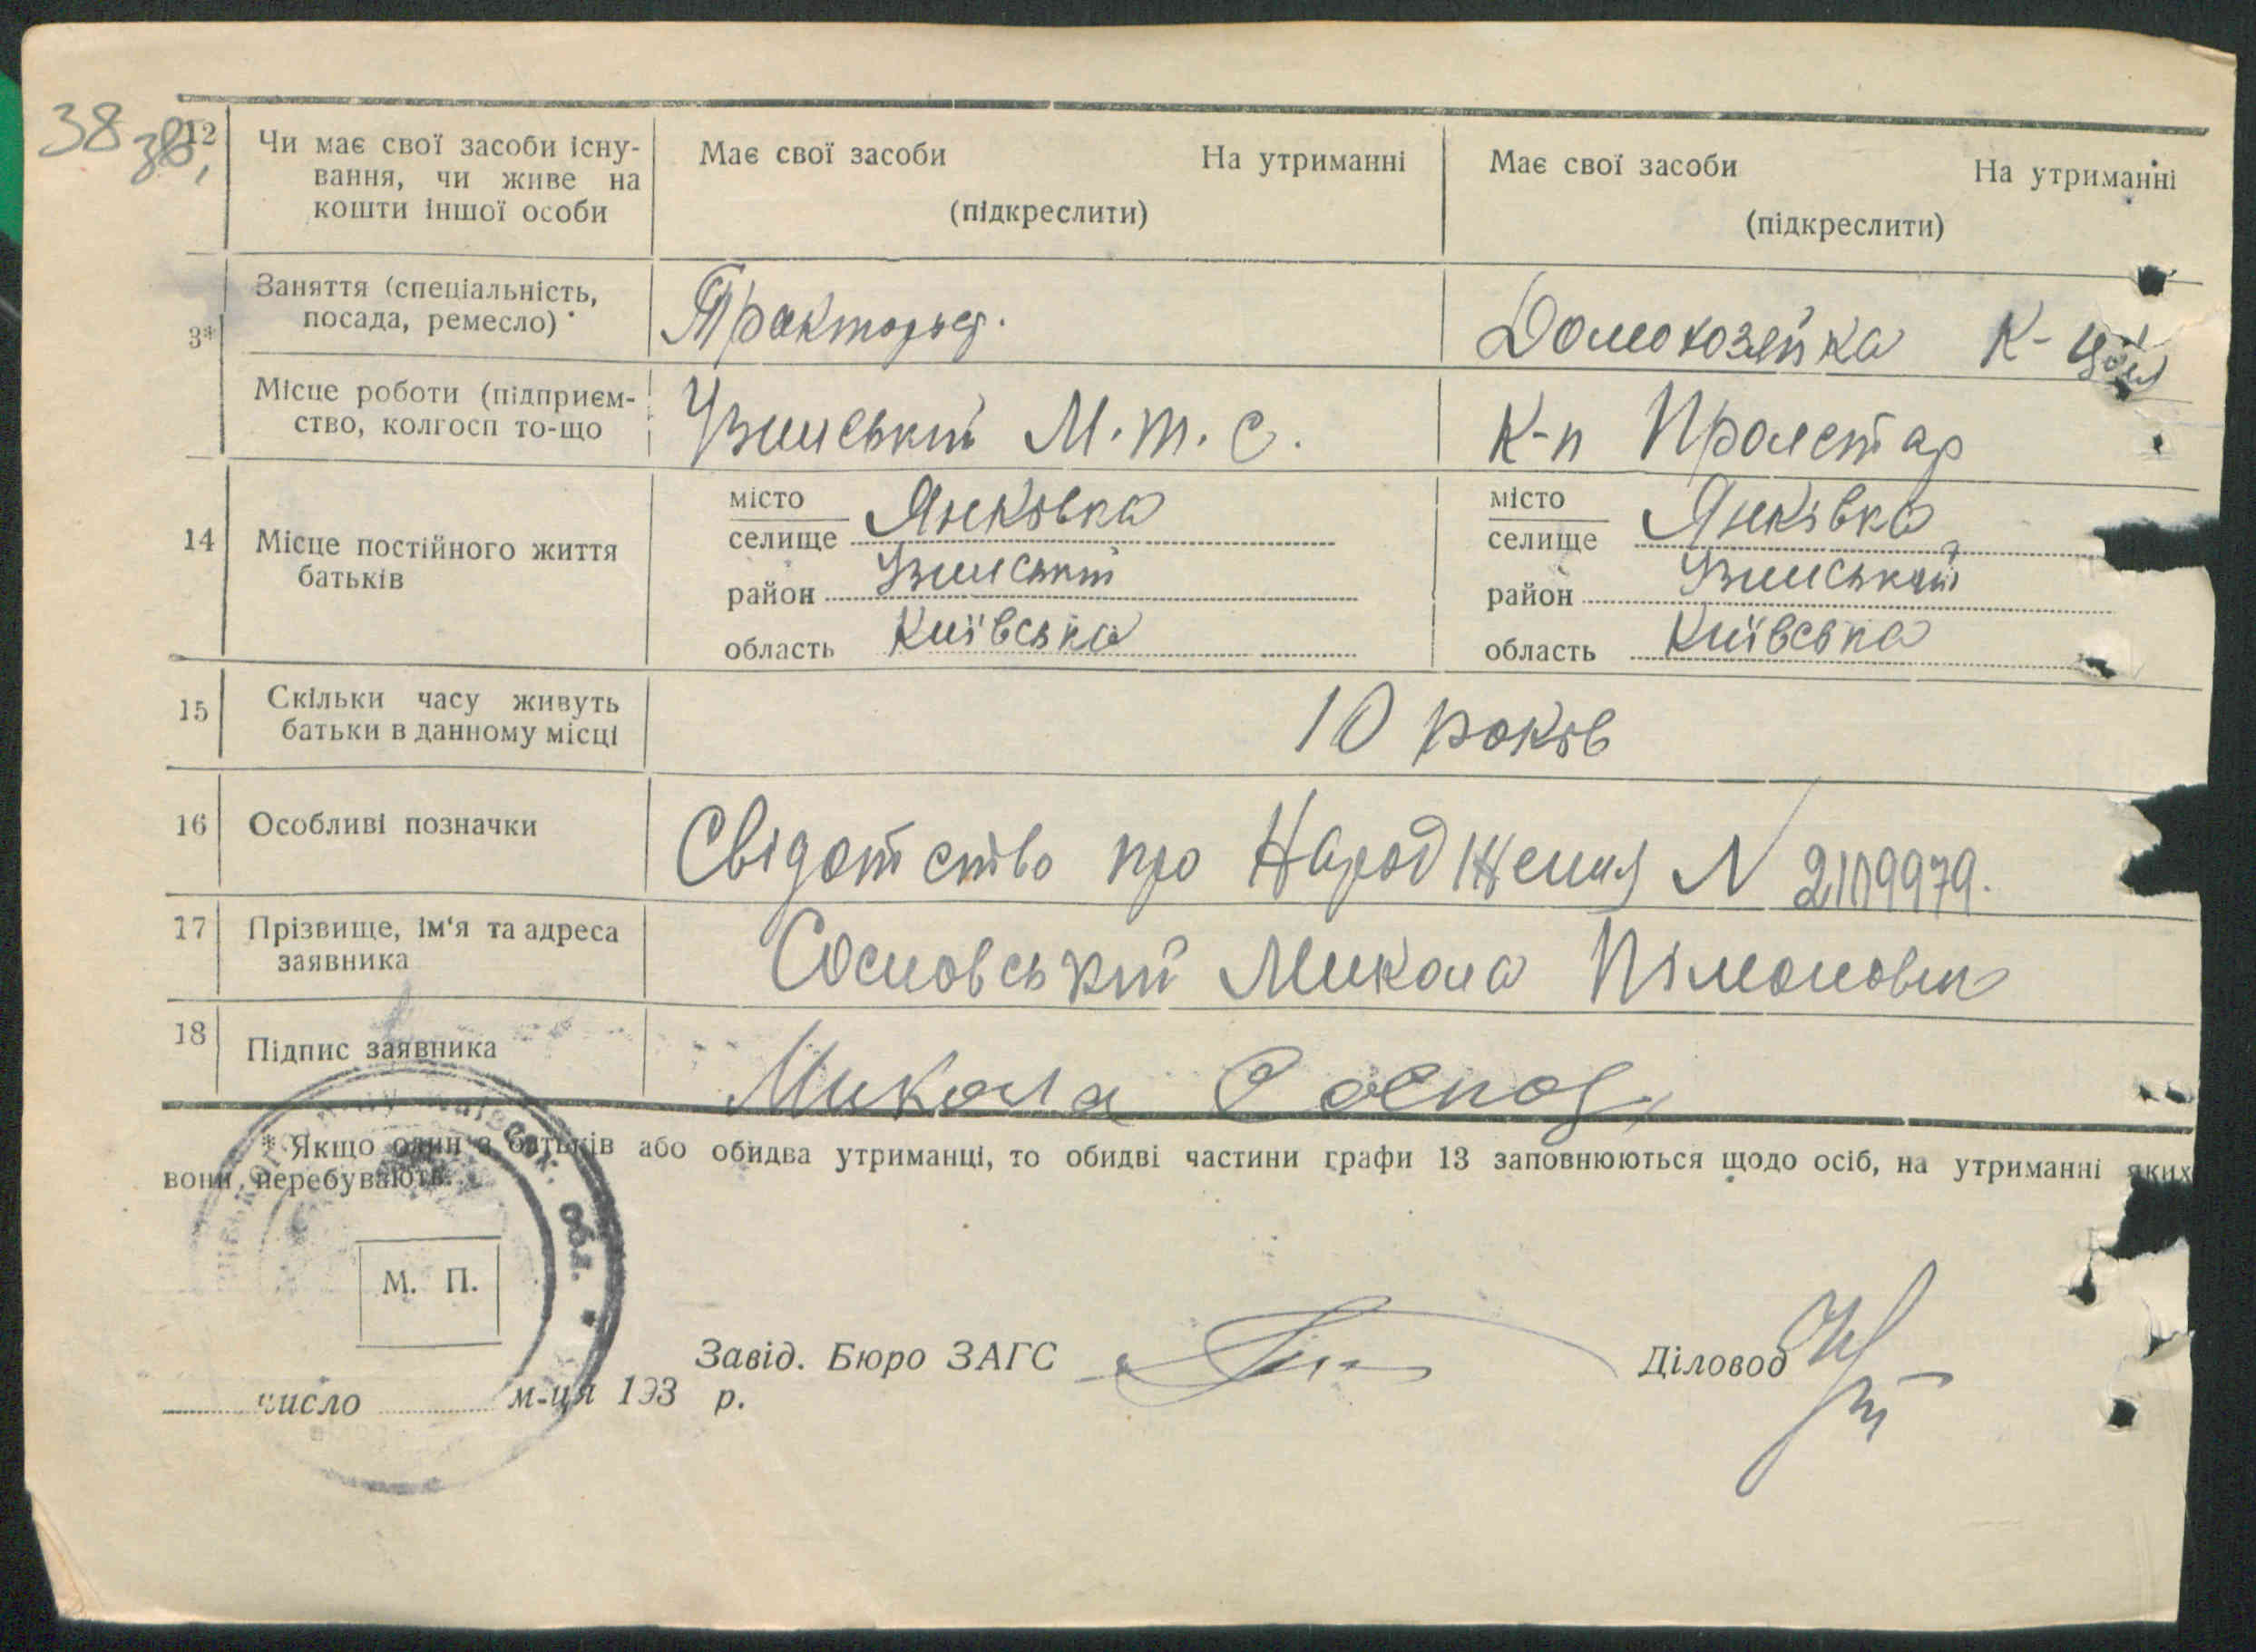 38 38,
12 Чи має свої засоби існу-
вання, чи живе на
кошти іншої особи
Має свої засоби На утриманні
(підкреслити)
Має свої засоби На утриманні
(підкреслити)
3*
Заняття (спеціальність,
посада, ремесло)
Домохозяйка К-
Місце роботи (підприєм-
ство, колгосп то-що
Узинський М.т.с.
К-п Пролетар
14 Місце постійного життя
батьків
місто
селище Янківка
район Узинський
область Київська
місто
селище Янківка
район Узинський
область Київська
15 Скільки часу живуть
батьки в данному місці
10 років
16 Особливі позначки
Свідотство про Народження N 2109979.
17 Прізвище, ім'я та адреса
заявника
Сосновський Микола Пімонович
18 Підпис заявника
Микола
* Якщо один з батьків або обидва утриманці, то обидві частини графи 13 заповнюються щодо осіб, на утриманні яких
вони перебувають.
Київськ. обл.
М. П.
Завід. Бюро ЗАГС
Діловод
число м-ця 193 р.